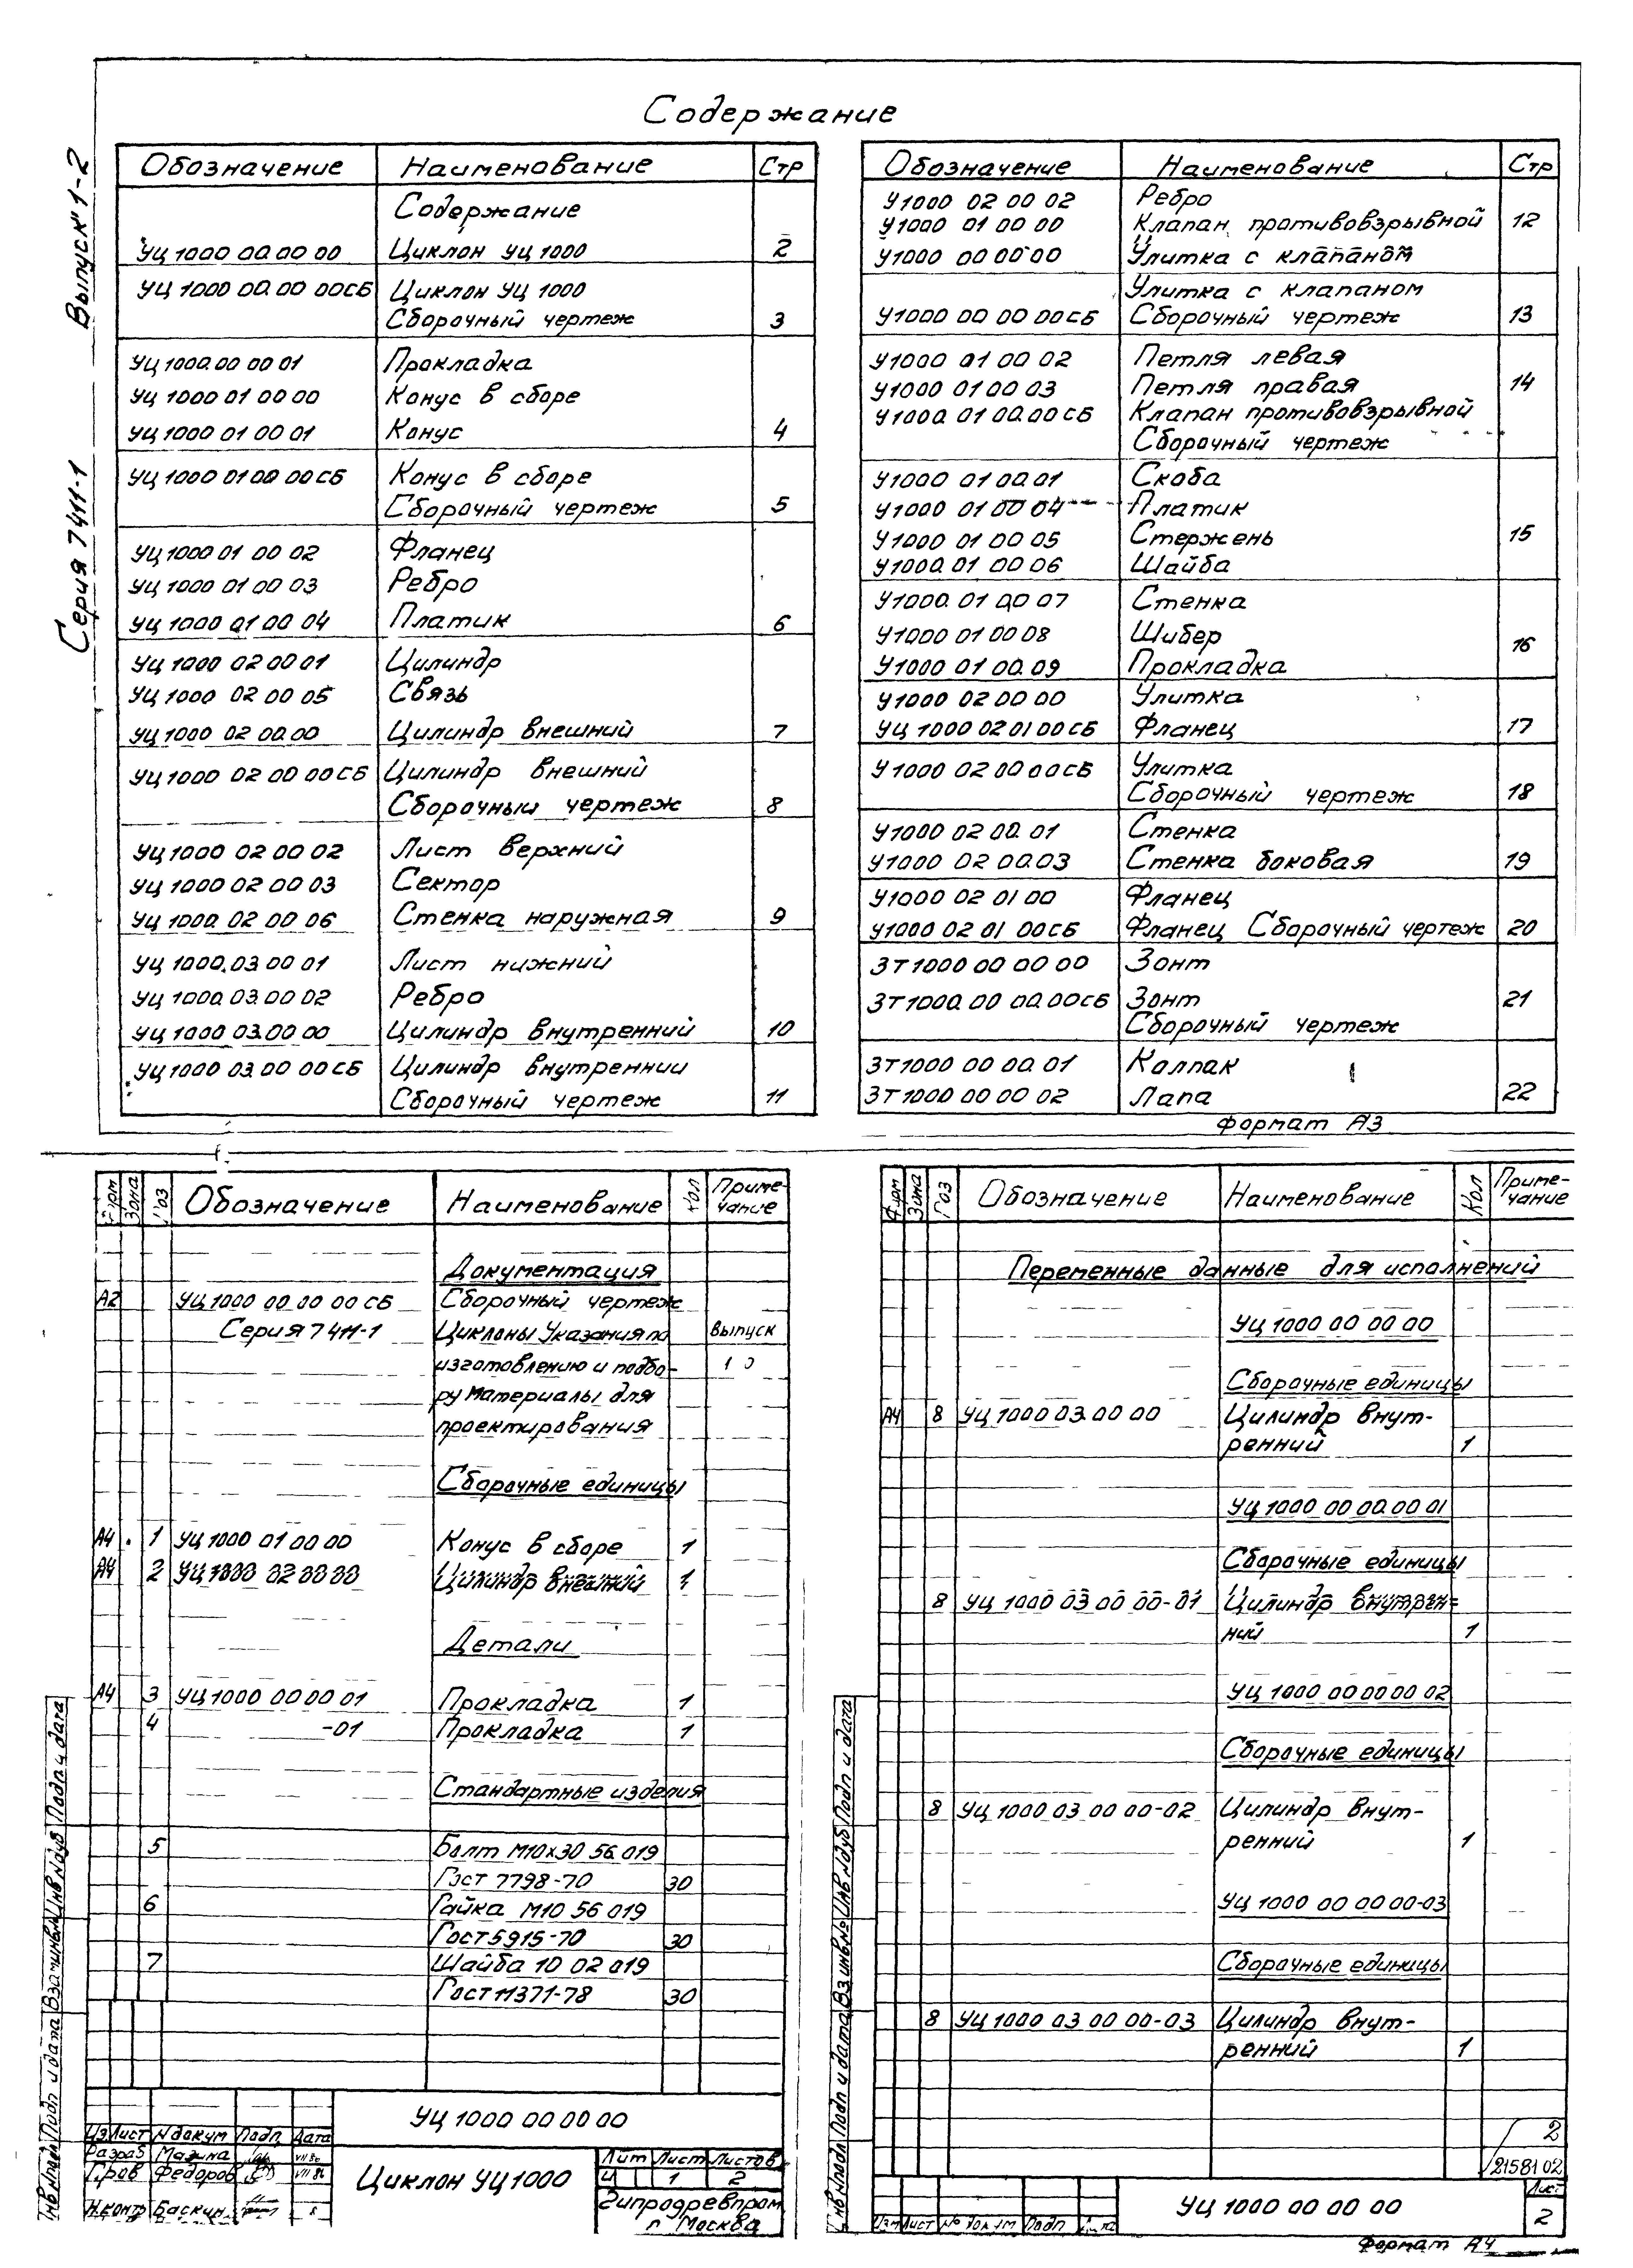 Содержание
Выпуск 1-2
Серия 7411-1
Обозначение Наименование Стр
Содержание
УЦ 1000 00.00 00 Циклон УЦ 1000 2
УЦ 1000 00.00 00СБ Циклон УЦ 1000
Сборочный чертеж 3
УЦ 1000.00 00 01 Прокладка
УЦ 1000 01 00 00 Конус в сборе
УЦ 1000 01 00 01 Конус 4
УЦ 1000 01 00 00 СБ Конус в сборе
Сборочный чертеж 5
УЦ 1000 01 00 02 Фланец
УЦ 1000 01 00 03 Ребро
УЦ 1000 01 00 04 Платик 6
УЦ 1000 02 00 01 Цилиндр
УЦ 1000 02 00 05 Связь
УЦ 1000 02 00.00 Цилиндр внешний 7
УЦ 1000 02 00 00 СБ Цилиндр внешний
Сборочный чертеж 8
УЦ 1000 02 00 02 Лист верхний
УЦ 1000 02 00 03 Сектор
УЦ 1000. 02 00 06 Стенка наружная 9
УЦ 1000.03 00 01 Лист нижний
УЦ 1000.03.00 02 Ребро
УЦ 1000 03.00 00 Цилиндр внутренний 10
УЦ 1000 03.00 00 СБ Цилиндр внутренний
Сборочный чертеж 11
Обозначение Наименование Стр
У1000 02 00 02 Ребро
У1000 01 00 00 Клапан противовзрывной 12
У1000 00 00 00 Улитка с клапаном
Улитка с клапаном
У1000 00 00 00 СБ Сборочный чертеж 13
У1000 01 00 02 Петля левая
У1000 01 00 03 Петля правая 14
У1000. 01 00.00 СБ Клапан противовзрывной
Сборочный чертеж
У1000 01 00.01 Скоба
У1000 01 00 04 Платик
У1000 01 00 05 Стержень 15
У1000.01 00 06 Шайба
У1000. 01 00 07 Стенка
У1000 01 00 08 Шибер
У1000 01 00.09 Прокладка 16
У1000 02 00 00 Улитка
УЦ 1000 02 01 00 СБ Фланец 17
У1000 02 00 00 СБ Улитка
Сборочный чертеж 18
У1000 02 00. 01 Стенка
У1000 02 00.03 Стенка боковая 19
У1000 02 01 00 Фланец
У1000 02 01 00СБ Фланец Сборочный чертеж 20
ЗТ1000 00 00 00 Зонт
ЗТ1000.00 00.00СБ Зонт 21
Сборочный чертеж
ЗТ1000 00 00.01 Колпак
ЗТ1000 00 00 02 Лапа 22
Формат А3
Зона Обозначение Наименование Кол Приме-
чание
Документация
А2 УЦ 1000 00 00 00 СБ Сборочный чертеж
Серия 7411-1 Циклоны Указания по Выпуск
изготовлению и подбо-
ру Материалы для
проектирования
Сборочные единицы
А4 1 УЦ 1000 01 00 00 Конус в сборе 1
А4 2 УЦ 1000 02 00 00 Цилиндр внешний 1
Детали
А4 3 УЦ 1000 00 00 01 Прокладка 1
4 -01 Прокладка 1
Стандартные изделия
5 Болт М10х30 56.019
Гост 7798-70 30
6 Гайка М10 56 019
Гост 5915-70 30
7 Шайба 10 02 019
Гост 11371-78 30
Подп и дата
Инв № дуб
Взам инв №
Подп и дата
УЦ 1000 00 00 00
Из Лист № докум Подп. Дата
Разраб Мазина VII 86
Пров Федоров VIII 86
Н.контр Баскин
Циклон УЦ 1000
Лит Лист Листов
И 1 2
Гипродревпром
г Москва
Зона Поз Обозначение Наименование Кол Приме-
чание
Переменные данные для исполнений
УЦ 1000 00 00 00
Сборочные единицы
А4 8 УЦ 1000 03.00 00 Цилиндр внут-
ренний 1
УЦ 1000 00 00.00 01
Сборочные единицы
8 УЦ 1000 03 00 00-01 Цилиндр внутрен-
ний 1
УЦ 1000 00 00 00 02
Сборочные единицы
8 УЦ 1000 03 00 00-02 Цилиндр внут-
ренний 1
УЦ 1000 00 00 00-03
Сборочные единицы
8 УЦ 1000 03 00 00-03 Цилиндр внут-
ренний 1
Подп и дата
Инв № дуб
Взам инв №
Подп и дата
Инв № подл
2
21581 02
Изм Лист № док ум Подп
УЦ 1000 00 00 00
Лист
2
Формат А4